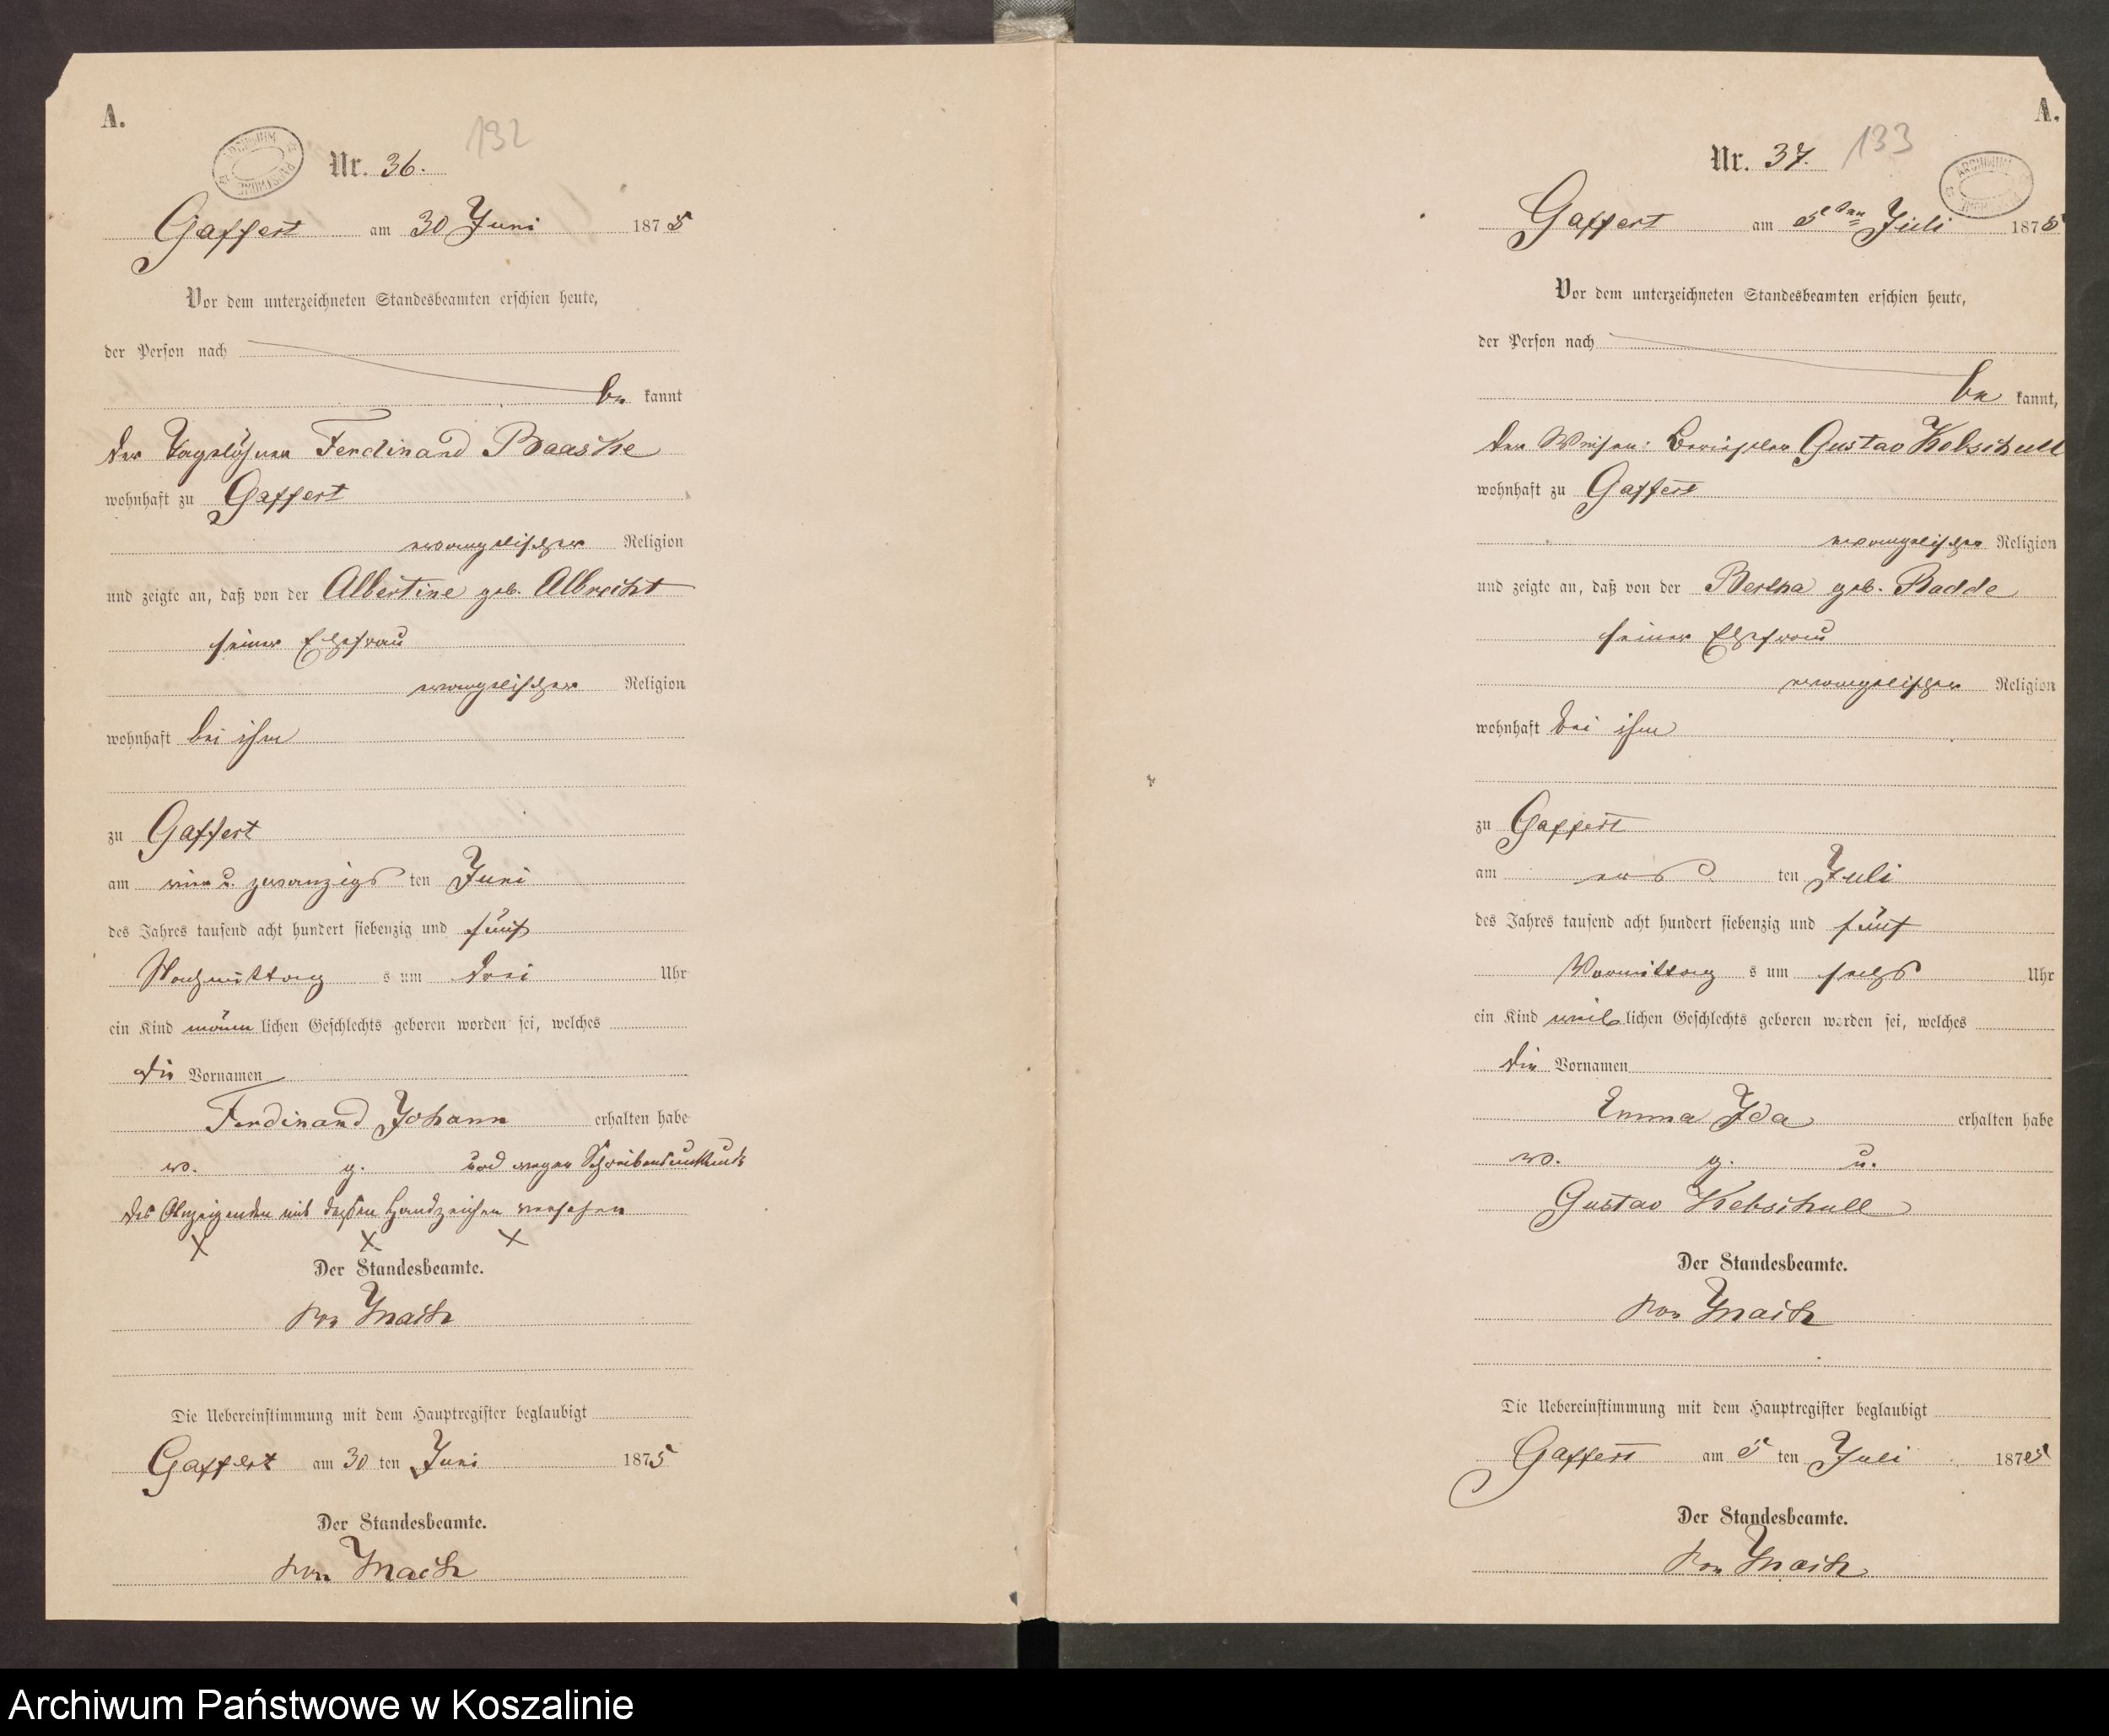 A.
132
Nr. 36.
Gaffert am 30 Juni 1875
Vor dem unterzeichneten Standesbeamten erschien heute,
der Person nach
be kannt
der Tagelöhner Ferdinand Baaske
wohnhaft zu Gaffert
evangelischer Religion
und zeigte an, daß von der Albertine geb. Albrecht
seiner Ehefrau
evangelischer Religion
wohnhaft bei ihm
zu Gaffert
am ein u. zwanzigs ten Juni
des Jahres tausend acht hundert siebenzig und fünf
Nachmittag s um drei Uhr
ein Kind männ lichen Geschlechts geboren worden sei, welches
die Vornamen
Ferdinand Johann erhalten habe
v. g. und wegen Schreibensunkunde
des Anzeigenden mit dessen Handzeichen versehen
X X X
Der Standesbeamte.
von Mach
Die Uebereinstimmung mit dem Hauptregister beglaubigt
Gaffert am 30 ten Juni 1875
Der Standesbeamte.
von Mach
A.
133
Nr. 37.
ARCHIWUM
Gaffert am 5ten Juli 1875
Vor dem unterzeichneten Standesbeamten erschien heute,
der Person nach
be kannt,
der Gustav Kebschull
wohnhaft zu Gaffert
evangelischer Religion
und zeigte an, daß von der Bertha geb. Radde
seiner Ehefrau
evangelischer Religion
wohnhaft bei ihm
zu Gaffert
am ers ten Juli
des Jahres tausend acht hundert siebenzig und fünf
Vormittag s um sechs Uhr
ein Kind weib lichen Geschlechts geboren worden sei, welches
die Vornamen
Emma Ida erhalten habe
v. g. u.
Gustav Kebschull
Der Standesbeamte.
von Mach
Die Uebereinstimmung mit dem Hauptregister beglaubigt
Gaffert am 5 ten Juli 1875
Der Standesbeamte.
von Mach
Archiwum Państwowe w Koszalinie